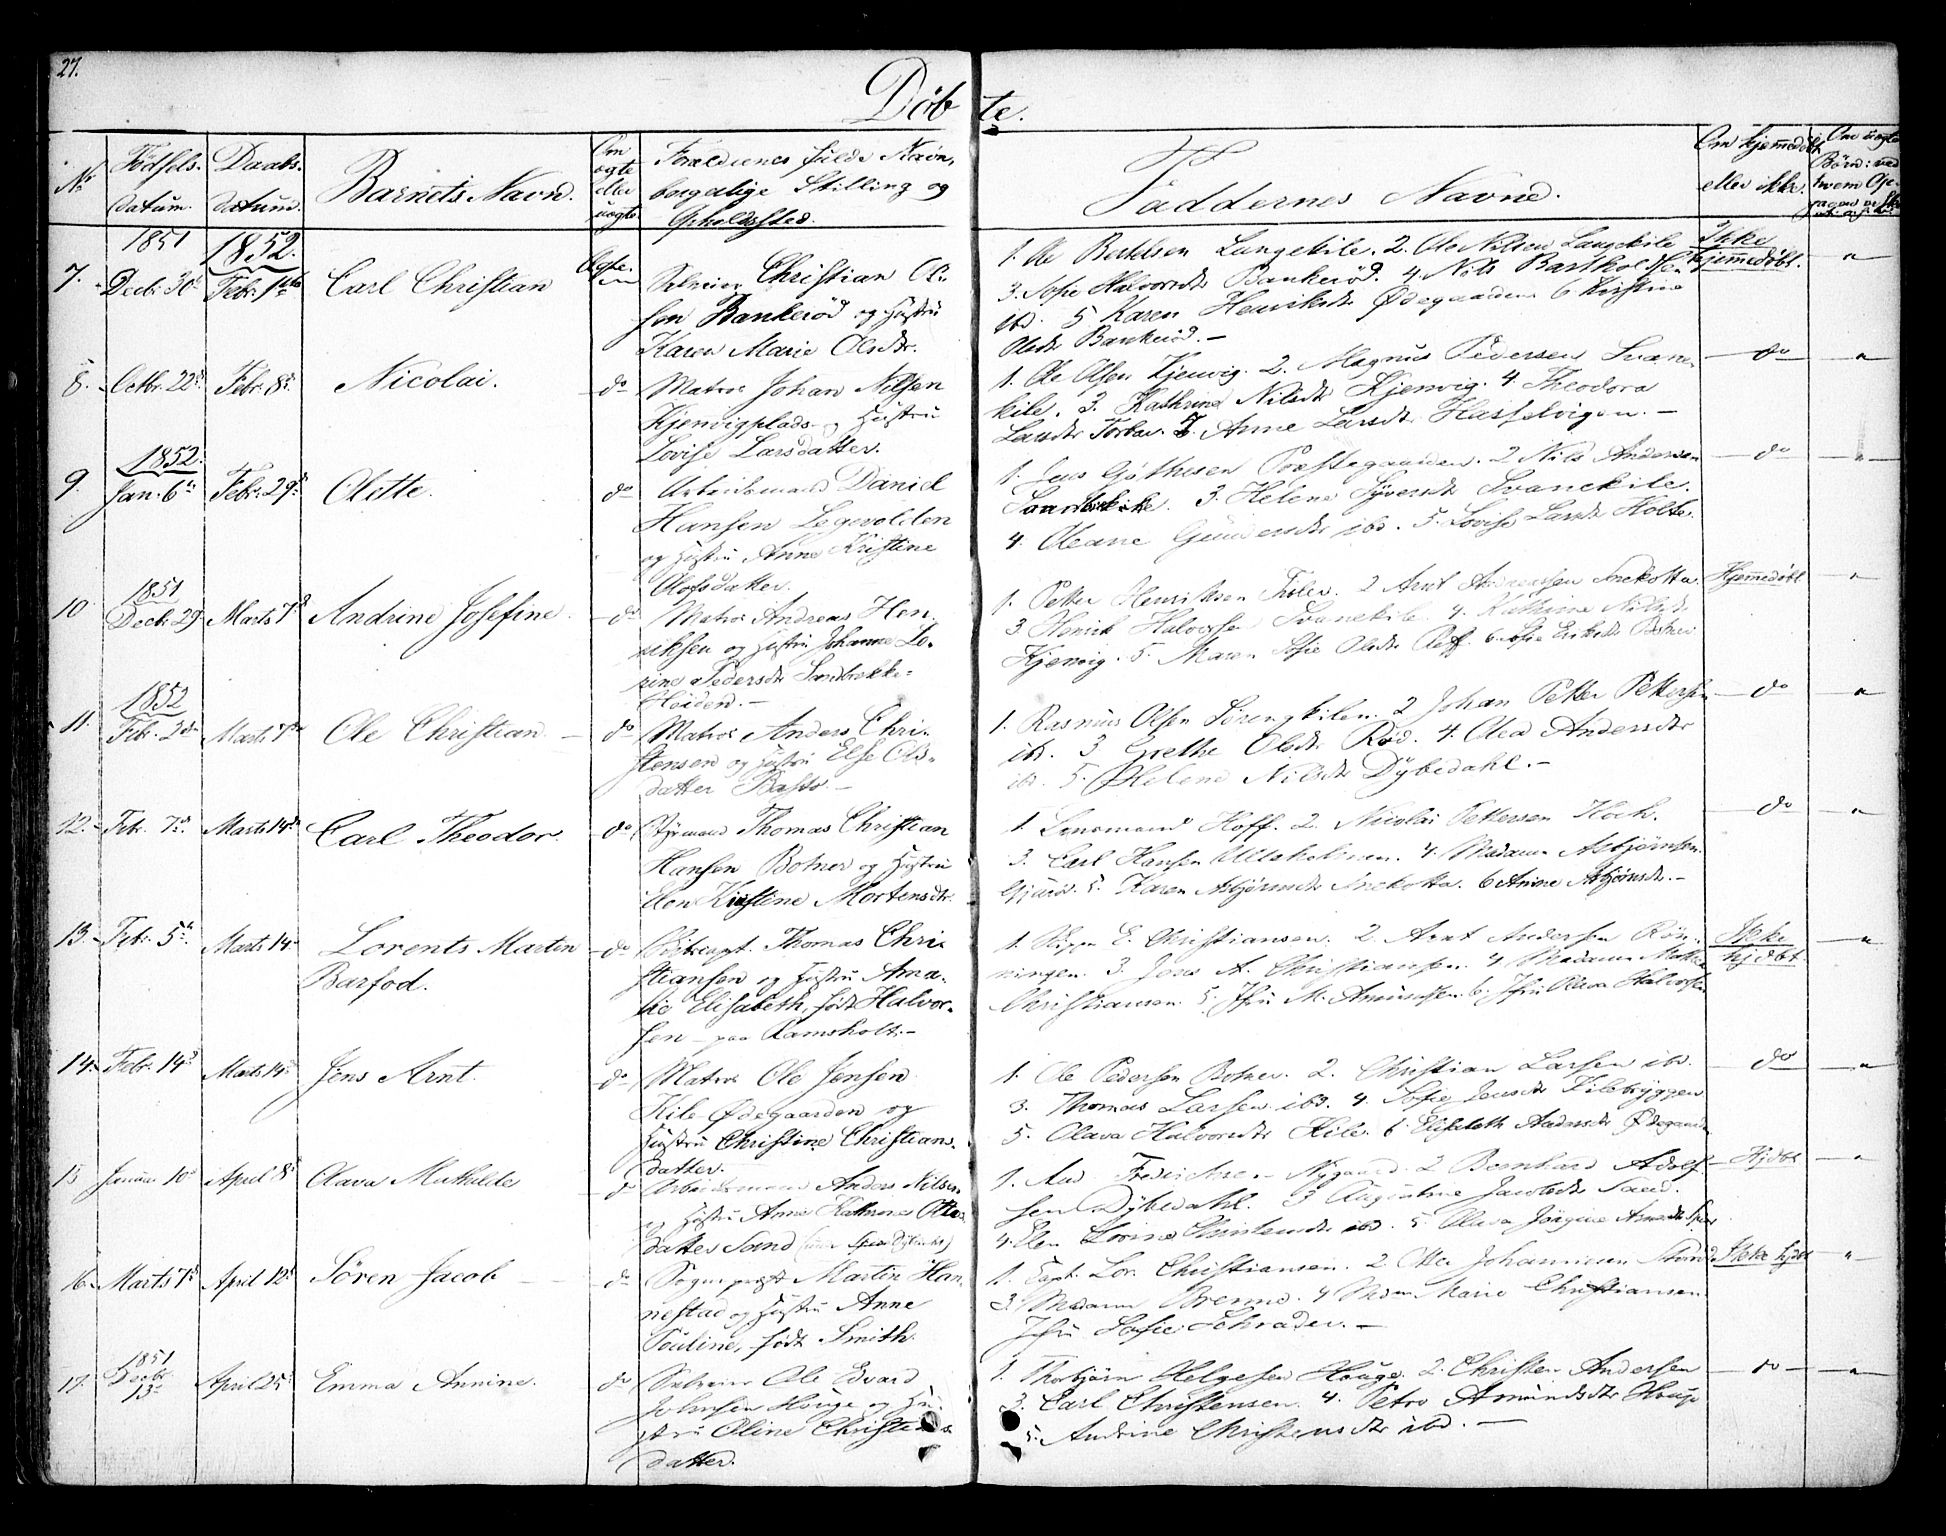 27.
Döbte.
No
Födsels-
datum.
Daabs-
datum.
Barnets Navn.
Om
ægte
eller
uægte
Forældrenes fulde Navn,
borgerlige Stilling og
Opholdssted.
Faddernes Navne.
Om hjemmedöbt
eller ikke.
7.
1851
Decbr. 30
1852.
Febr. 1ste
Carl Christian
Ægte.
Selveier Christian Ol-
sen Bankeröd og Hustru
Karen Marie Olsdtr.
1. Ole Bertelsen Langekile. 2. Ole Nilsen Langekile
3. Sofie Halvorsdtr Bankeröd. 4. Nils Bartholsen
ibd. 5 Karen Henriksdtr Ödegaarden 6 Kirstine
Olsdtr Bankeröd. -
Ikke
hjemmedöbt.
8.
Octbr. 22
Febr. 8
Nicolai.
do
Matros Johan Nilsen
Kjenvigplads og Hustru
Lovise Larsdatter.
1. Ole Olsen Kjenvig. 2. Magnus Pedersen Svane-
kile. 3. Kathrine Nilsdtr Kjenvig. 4. Theodora
Larsdtr Torbar. 5. Anne Larsdtr Hasselvigen. -
do
9.
1852.
Jan. 6
Febr. 29
Olette.
do
Arbeidsmand Daniel
Hansen Legevolden
og Hustru Anne Kristine
Olofsdatter.
1. Jens Göthesen Præstegaarden. 2 Nils Andersen
3. Helene Syversdtr Svanekile.
4. Oleane Gundersdtr ibd. 5. Lovise Larsdtr Holte.
do
10
1851
Decbr. 29
Marts 7
Andrine Josefine.
do
Matros Andreas Hen-
riksen og Hustru Johanne Lo-
rine Pedersdtr Sandbrekke-
Heiden. -
1. Petter Henriksen 2 Arnt Andreassen Snekotta
3. Henrik Halvorsen Svanekile 4. Kathrine Nilsdtr
Kjenvig. 5. Maren Sofie Olsdtr 6. Sofie Eriksdtr Botner
Hjemmedöbt
11.
1852
Febr. 2
Marts 7
Ole Christian
do
Matros Anders Chri-
stensen og Hustru Else Ols-
datter Basto -
1. Rasmus Olsen Sörengkilen. 2 Johan Petter Pettersen
ibd. 3 Grethe Olsdtr Röd. 4. Olea Andersdtr
ibd. 5. Helene Nilsdtr Dybedahl. -
do
12.
Febr. 7
Marts 14
Carl Theodor.
do
Styrmand Thomas Christian
Hansen Botner og Hustru
Elen Kirstine Mortensdtr.
1. Lensmand Hoff. 2. Nicolai Pettersen Koch.
3. Carl Hansen Ulleholmen. 4. Madame Asbjörnsen
5. Karen Asbjörnsdtr Snekotta. 6 Anine Asbjörnsdtr. -
do
13.
Febr. 5
Marts 14
Lorents Martin
Barfod.
do
Thomas Chri-
stiansen og Hustru Ama-
lie Elisabeth, födt Halvor-
sen - paa Ramsholt. -
1. Skipper E. Christiansen. 2. Arnt Andersen Rön-
ningen. 3. Jens A. Christiansen. 4 Madame Mathea
Christiansen. 5. Jfru M. Amundsen. 6. Jfru Olava Halvorsen
Ikke
hjdbt.
14.
Febr. 14
Marts 14
Jens Arnt.
do
Matros Ole Jensen
Kile Ödegaarden og
Hustru Christine Christians-
datter.
1. Ole Pedersen Botner. 2. Christian Larsen ibd.
3. Thomas Larsen ibd. 4. Sofie Jensdtr Kilebryggen
5. Olava Halvorsdtr Kile. 6 Elisabeth Andersdtr Ödegaarden
do
15
Januar 10
April 8
Olava Mathilde
do
Arbeidsmand Anders Nilsen
og Hustru Anne Kathrine Otters-
datter Sand
1. And. Fredriksen Nygaard. 2 Bernhard Adolf-
sen Dybedahl. 3 Augustine Jacobsdtr Sand.
4. Elen Lovine Christensdtr ibd. 5. Olava Jörgine
Hjdbt
16.
Marts 7
April 12
Sören Jacob
do
Sogneprest Martin Han-
nestad og Hustru Anne
Pouline, födt Smith.
1. Capt. Lor. Christiansen. 2. Otter Johannesen
3. Madame Bremme. 4 Mdm Marie Christiansen
Jfru Sofie Schrader. -
Ikke hjdbt
17.
1851
Decbr
13
April 25
Emma Annine.
do
Selveier Ole Edvard
Johnsen Houge og Hu-
stru Oline Christens-
datter.
1. Thorbjörn Helgesen Houge. 2. Christen Andersen
3. Carl Christensen. 4. Petra Amundsdtr Houge
5. Andrine Christensdtr ibd. -
do